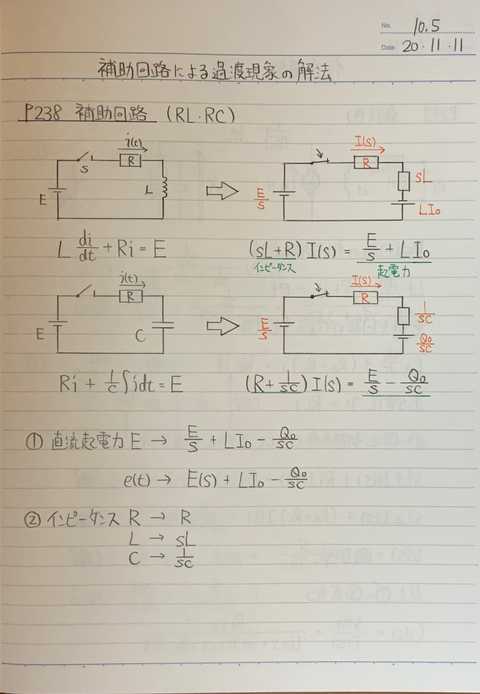 No. 10.5
Date 20・11・11
補助回路による過渡現象の解法
P238 補助回路 (RL・RC)
i(t)
S
R
E
L
I(s)
R
E/s
sL
LI₀
L di/dt + Ri = E
(sL+R) I(s) = E/s + LI₀
インピーダンス
起電力
i(t)
R
E
C
I(s)
R
E/s
1/sC
Q₀/sC
Ri + 1/C ∫idt = E
(R + 1/sC) I(s) = E/s - Q₀/sC
① 直流起電力 E → E/s + LI₀ - Q₀/sC
e(t) → E(s) + LI₀ - Q₀/sC
② インピーダンス R → R
L → sL
C → 1/sC